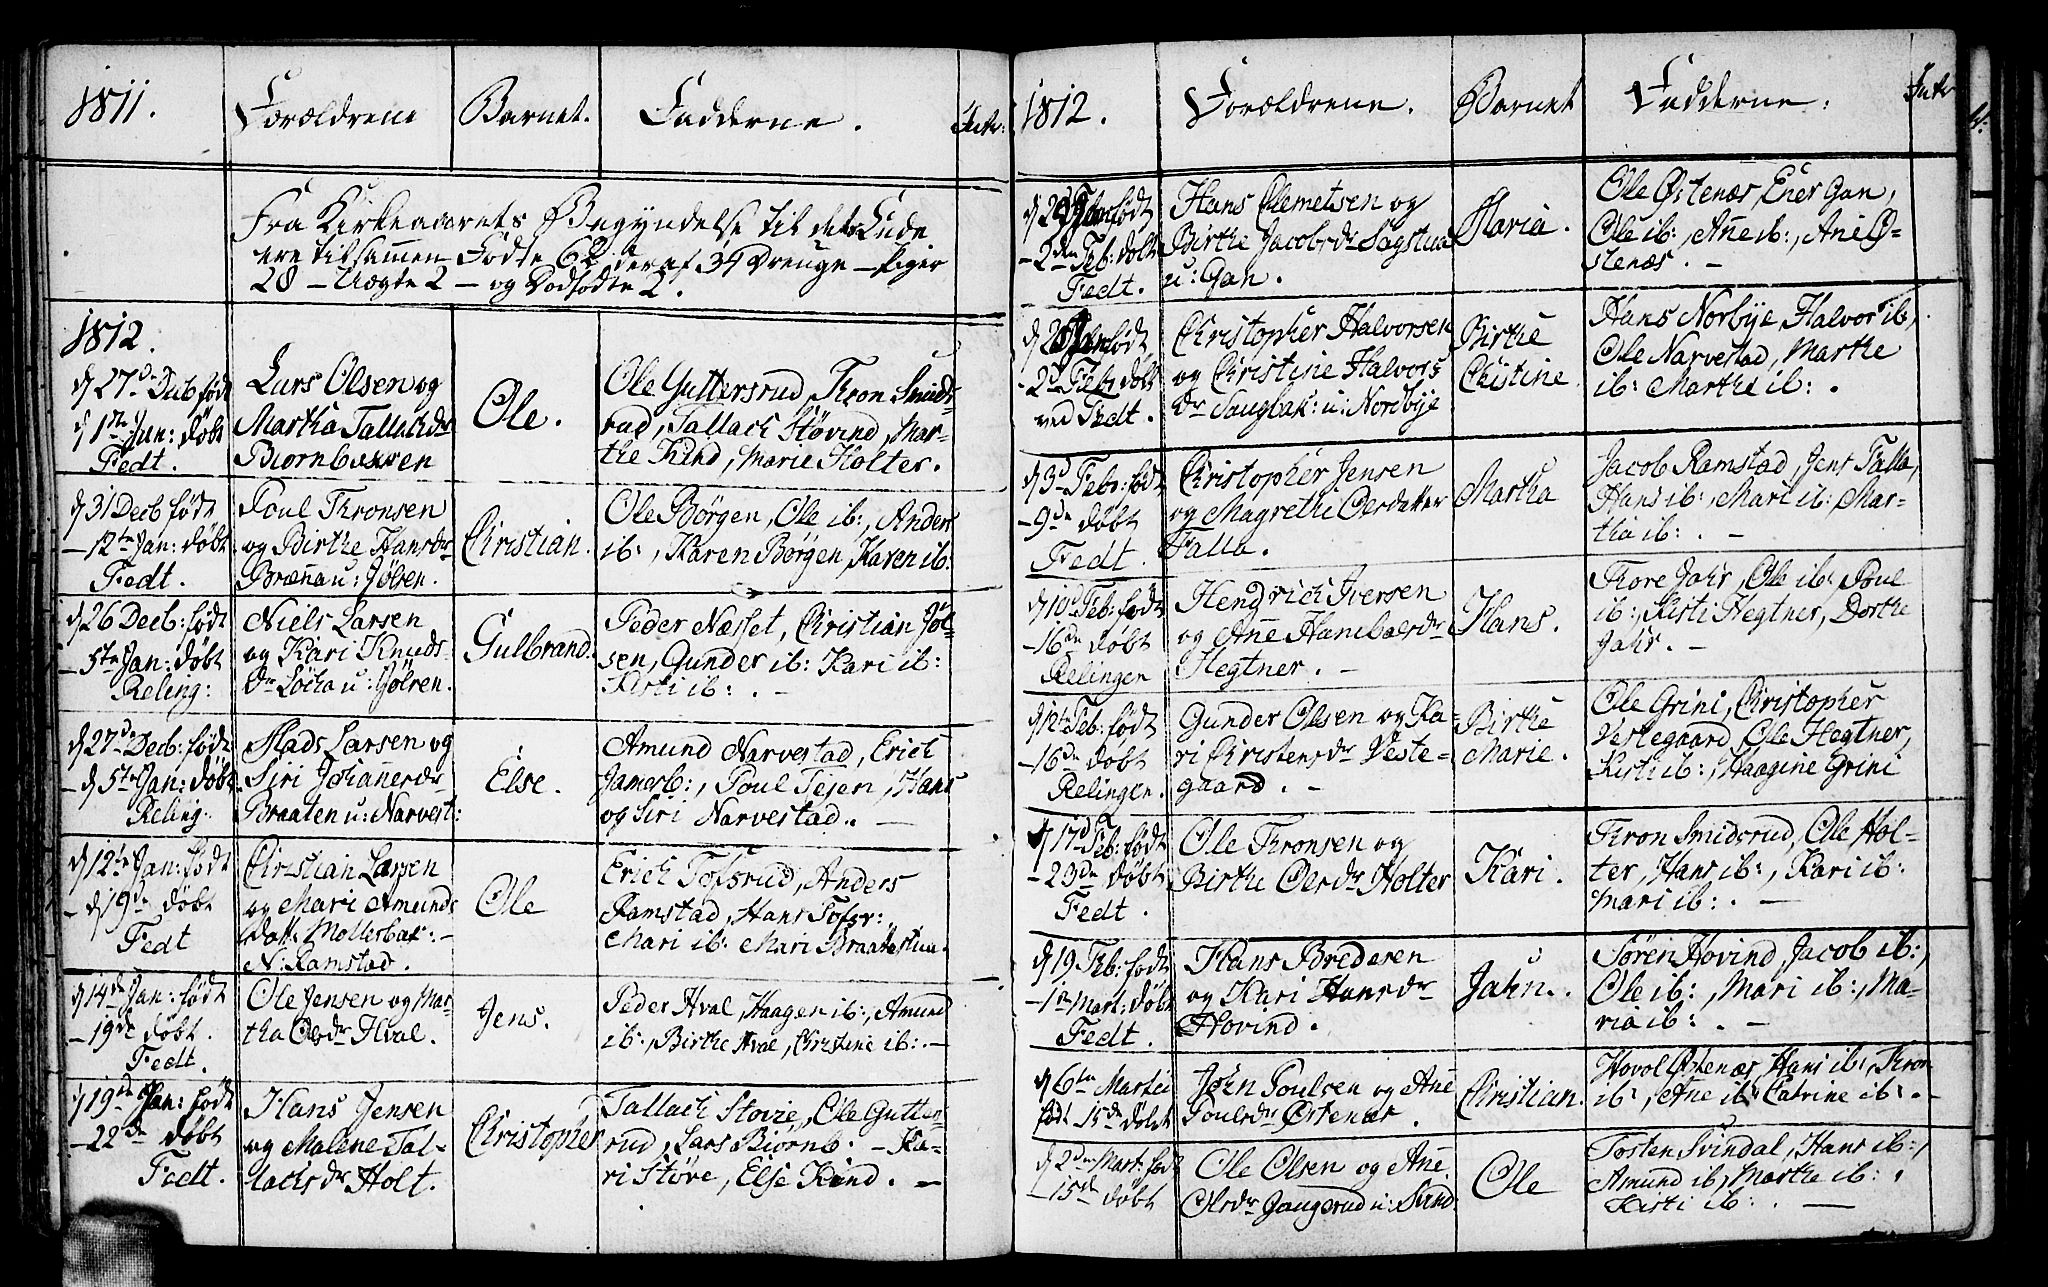 1811.
Forældrene
Barnet.
Fadderne.
Intr:
Fra Kirkeaarets Begyndelse til dets Ende
ere tilsammen Fødte 62 deraf 34 Drenge – Piger
28 – Uægte 2 – og Dødfødte 2.
1812.
d 27de Decb født
d 1te Jan: døbt
Fedt.
Lars Olsen og
Martha Tallachdr
Biørnb
Ole.
Ole Guttersrud, Thron Smids-
rud, Tallach Støvind, Mar-
the Kind, Marie Holter.
d 31 Decb født
– 12te Jan: døbt
Fedt.
Poul Thronsen
og Birthe Hansdr
Bræna u: Jølsen.
Christian.
Ole Børgen, Ole ib:, Anders
ib:, Karen Børgen, Karen ib:
d 26 Decb: født
– 5te Jan: døbt
Reling:
Niels Larsen
og Kari Knuds-
dr Løcka u: Jølsen.
Gulbrand.
Peder Næsset, Christian Jøl-
sen, Gunder ib: Kari ib:
Kisti ib: . –
d 27de Decb: født
– d 5te Jan: døbt
Reling.
Mads Larsen og
Siri Johanesdr
Braaten u: Narvest:
Else.
Amund Narvestad, Erich
Jamesb:, Poul Tejen, Hans
og Siri Narvestad. –
d 12te Jan: født
– d 19de døbt
Fedt
Christian Larsen
og Mari Amunds
datt: Mollerbak: –
N: Ramstad.
Ole
Erich Tofsrud, Anders
Ramstad, Hans Tofsr:
Mari ib: Mari Braatestuen.
d 14de Jan: født
– 19de døbt.
Fedt.
Ole Jensen og Mar-
tha Olsdr Hval.
Jens.
Peder Hval, Haagen ib:, Amund
ib:, Birthe Hval, Christine ib: –
d 19de Jan: født
– 22de døbt
Fedt.
Hans Jensen
og Malene Tal-
lachsdr Holt.
Christopher
Tallach Stovie, Ole Gutter-
rud, Lars Biørnb. – Ka-
ri Støve, Else Kind. –
1812.
Forældrene.
Barnet
Fadderne.
Intr
født
– 2den Feb: døbt
Fedt.
Hans Clemetsen og
Birthe Jacobsdr Sagstua
u: Gan.
Maria.
Ole Østenæs, Ener Gan,
Ole ib:, Ane ib:, Ane Ø-
stenæs. –
født
– 2d Feb: døbt
ved Fedt.
Christopher Halvorsen
og Christine Halvors
dr Saugbak: u: Nordbye
Birthe
Christine.
Hans Norbye, Halvor ib,
Ole Narvestad, Marthe
ib: Marthe ib: .
d 3d Feb: født
– 9de døbt
Fedt.
Christopher Jensen
og Magrethe Olesdatter
Falla.
Martha
Jacob Ramstad, Jens Falla,
Hans ib:, Mari ib: Mar-
tha ib: . –
d 10d Feb: født
– 16de døbt
Relingen
Hendrich Iversen
og Ane Hanibalsdr
Hegtner. –
Hans.
Thore Jahr, Ole ib: Poul
ib:, Kisti Hegtner, Dorthe
Jahr. –
d 12te Feb: født
– 16de døbt
Relingen.
Gunder Olsen og Ka-
ri Christensdr Veste-
gaard. –
Birthe
Marie.
Ole Grini, Christopher
Vestegaard, Ole Hegtner,
Kisti ib:, Haagine Grini
d 17d Feb: født
– 23de døbt
Fedt.
Ole Thronsen og
Birthe Olsdr Holter
Kari.
Thron Smidsrud, Ole Hol-
ter, Hans ib:, Kari ib:
Mari ib: . –
d 19 Feb: født
– 1te Mart: døbt
Fedt.
Hans Bredesen
og Kari Hansdr
Hovind.
Jahn.
Søren Hovind, Jacob ib:,
Ole ib:, Mari ib:, Ma-
ria ib: . –
d 6te Martii
født 15de døbt
John Poulsen og Ane
Poulsdr Østenæs.
Christian.
Hovol Østenæs, Hans ib:, Thron
ib:, Ane ib: Catrine ib: . –
d 2den Mart: født
– 15de døbt
Ole Olsen og Ane
Olesdr Jaugsrud u: Svind
Ole
Tosten Svindal, Hans ib:,
Amund ib, Marthe ib: .
Kisti ib: . –